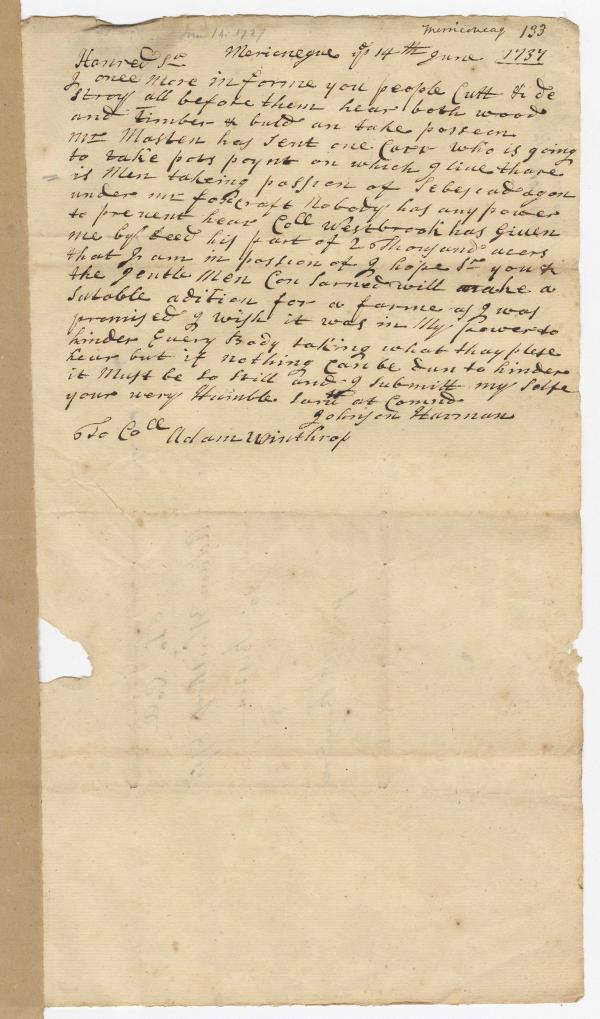 June 14. 1737
Merriconeag 133
Honred Sr Mericnegue ye 14th June 1737
I onee More in forme you people Cutt & de
stroy all before them hear both wood
and Timber & buld an take posseon
mr Masten has Sent one Carr who is going
to take pots poynt on which I live thare
is Men taking possion of Sebescad agon
under mr foxcraft Nobody has any power
to prevent hear Coll Westbrook has Given
me by Deed his part of 2 Thousand acers
that I am in possion of I hope Sr you &
the Gentle Men Con Sarned will make a
Sutable adition for a farme as I was
promised I wish it was in My power to
hinder Every Body taking what thay plese
hear but if nothing Can be dun to hinder
it Must be so Still and I submitt my Selfe
your very Humble Sarvt at Comnd
Johnson Harman
To Coll Adam Winthrop